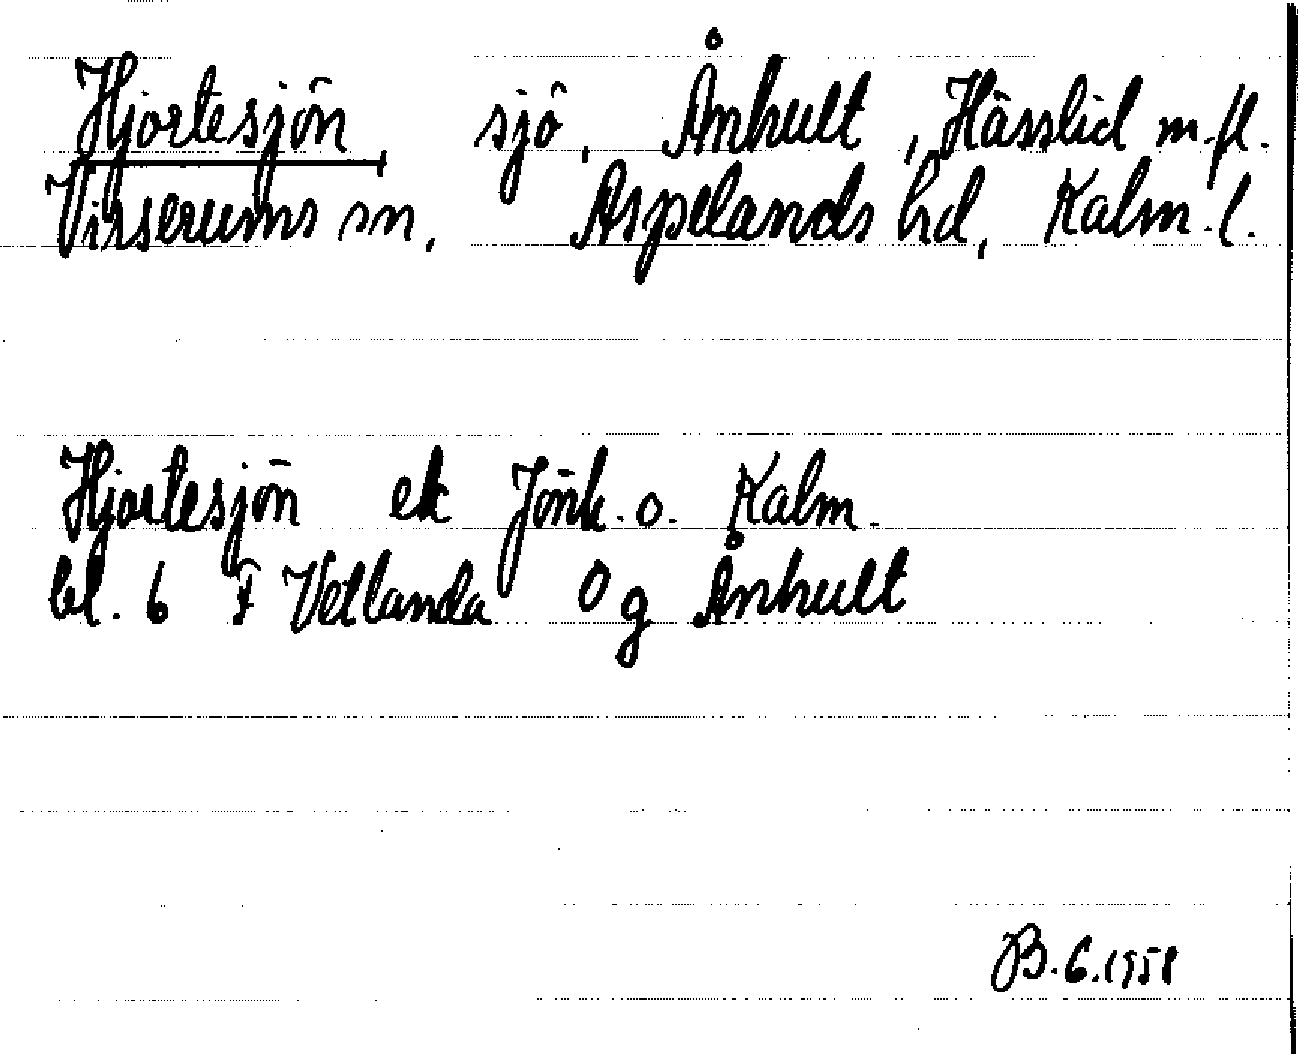 Hjortesjön, sjö, Ånhult, Hässlid m.fl.
Virserums sn, Aspelands hd, Kalm.l.
Hjortesjön ek Jönk.o. Kalm.
bl. 6 F Vetlanda 0 g Ånhult
B.G.1958